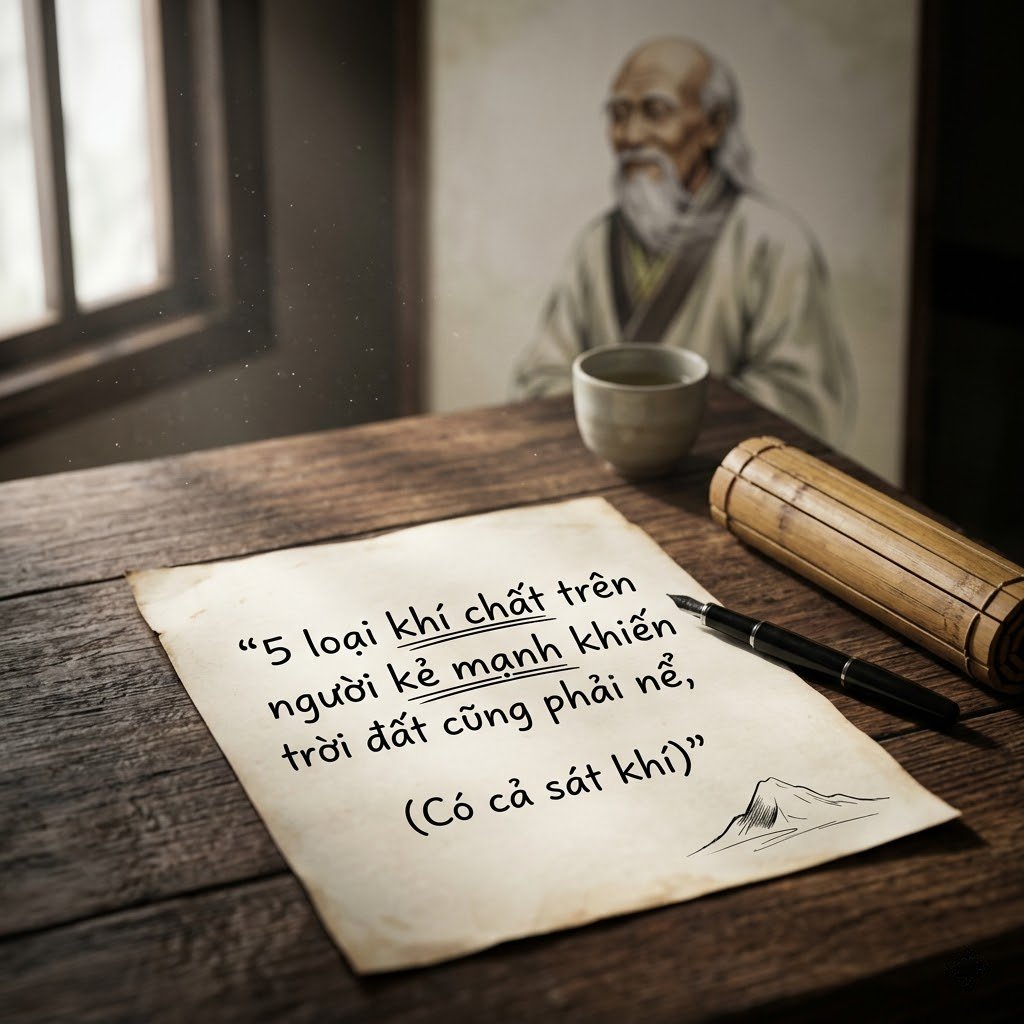 “5 loại khí chất trên
người kẻ mạnh khiến
trời đất cũng phải nể,
(Có cả sát khí)”